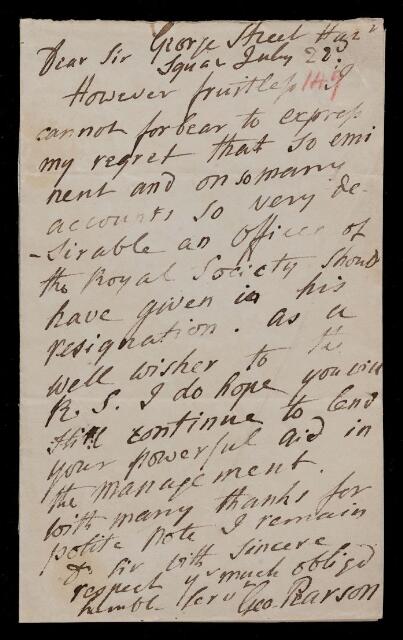 George Street Han r
Dear Sir Squar July 22d
However fruitless I
149
cannot forbear to express
my regret that so emi
nent and on so many
accounts so very de-
-sirable an Officer of
the Royal Society should
have given in his
resignation. as a
well wisher to the
R. S. I do hope you will
still continue to lend
your powerful aid in
the management.
with many thanks for
polite Note I remain
Dr Sir with sincere
respect yr much obliged
humble Serv
Geo. Pearson